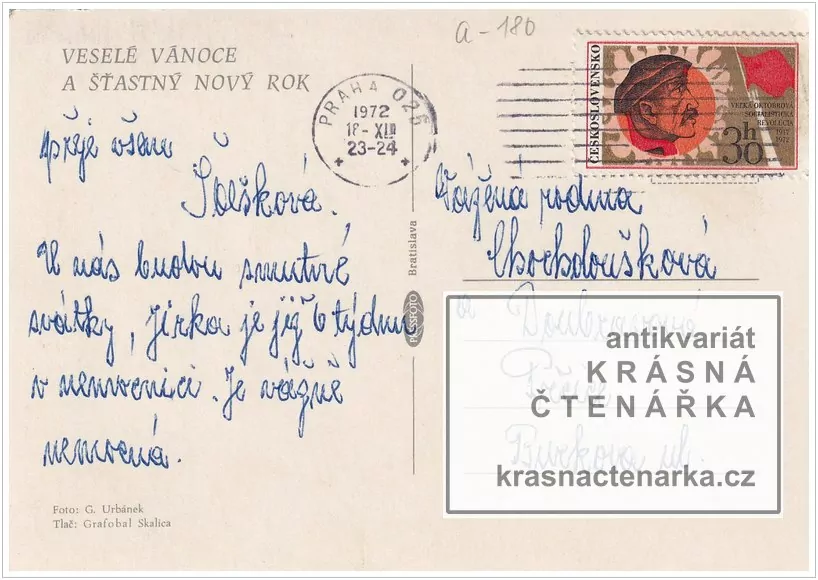 a-180
VESELÉ VÁNOCE
A ŠŤASTNÝ NOVÝ ROK
PRAHA 025
1972
18-XII
23-24
ČESKOSLOVENSKO
VEĽKÁ OKTÓBROVÁ
SOCIALISTICKÁ
REVOLÚCIA
1917
1972
30h
přeje všem
Šolšková.
U nás budou smutné
svátky, Jirka je již 6 týdnu
v nemocnici. Je vážně
nemocná.
Vážená rodina
Chochdoušková
a
Bratislava
PRESSFOTO
antikvariát
KRÁSNÁ
ČTENÁŘKA
krasnactenarka.cz
Burkova ul.
Foto: G. Urbánek
Tlač: Grafobal Skalica